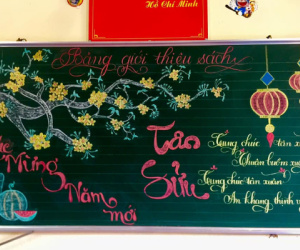 Hồ Chí Minh
Bảng giới thiệu sách
Mừng
Năm
mới
Tân
Sửu
Cung chúc tân xuân
Cung chúc tân xuân
An khang thịnh